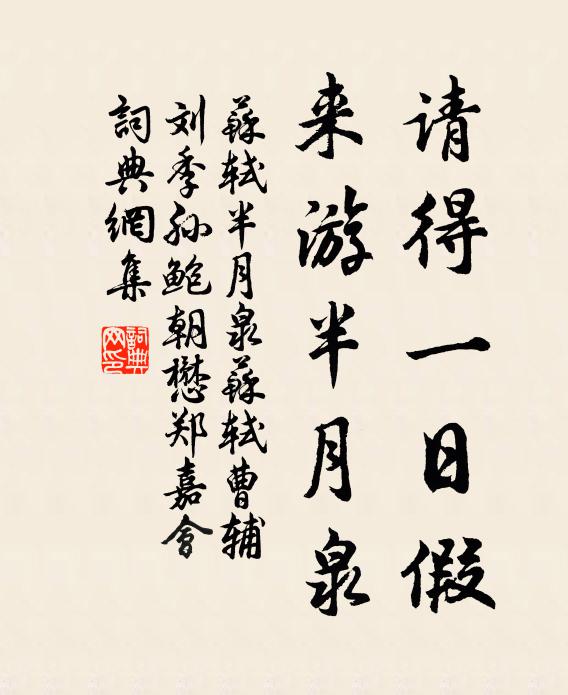 请得一日假
来游半月泉
蘇轼半月泉蘇轼曹辅
刘季孙鲍朝懋郑嘉會
詞典網集
詞典網印